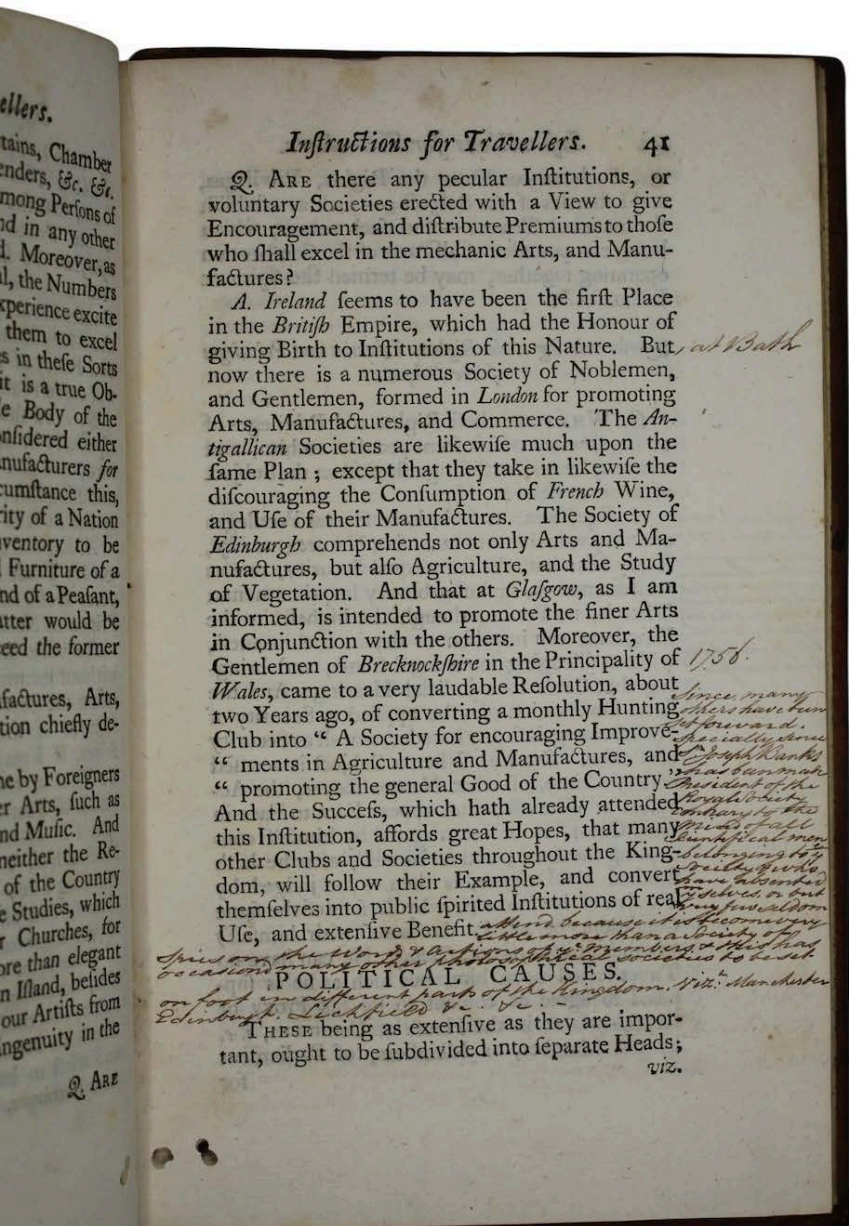 ellers.
tains, Chamber
enders, &c. &c.
mong Perſons of
nd in any other
d. Moreover, as
al, the Numbers
xperience excite
them to excel
s in theſe Sorts
it is a true Ob-
e Body of the
onſidered either
nufacturers for
cumſtance this,
rity of a Nation
ventory to be
Furniture of a
nd of a Peaſant,
atter would be
eed the former
ufactures, Arts,
tion chiefly de-
ne by Foreigners
er Arts, ſuch as
nd Muſic. And
neither the Re-
of the Country
e Studies, which
r Churches, for
ore than elegant
n Iſland, beſides
our Artiſts from
ngenuity in the
Q. ARE
Inſtructions for Travellers. 41
Q. ARE there any pecular Inſtitutions, or
voluntary Societies erected with a View to give
Encouragement, and diſtribute Premiums to thoſe
who ſhall excel in the mechanic Arts, and Manu-
factures?
A. Ireland ſeems to have been the firſt Place
in the Britiſh Empire, which had the Honour of
giving Birth to Inſtitutions of this Nature. But
at Bath
now there is a numerous Society of Noblemen,
and Gentlemen, formed in London for promoting
Arts, Manufactures, and Commerce. The An-
tigallican Societies are likewiſe much upon the
ſame Plan ; except that they take in likewiſe the
diſcouraging the Conſumption of French Wine,
and Uſe of their Manufactures. The Society of
Edinburgh comprehends not only Arts and Ma-
nufactures, but alſo Agriculture, and the Study
of Vegetation. And that at Glaſgow, as I am
informed, is intended to promote the finer Arts
in Conjunction with the others. Moreover, the
Gentlemen of Brecknockſhire in the Principality of
Wales, came to a very laudable Reſolution, about
two Years ago, of converting a monthly Hunting
Club into “ A Society for encouraging Improve-
“ ments in Agriculture and Manufactures, and
“ promoting the general Good of the Country.”
And the Succeſs, which hath already attended
this Inſtitution, affords great Hopes, that many
other Clubs and Societies throughout the King-
dom, will follow their Example, and convert
themſelves into public ſpirited Inſtitutions of real
Uſe, and extenſive Benefit.
since many
others have been
set forward.
specially since
Sr. Joseph Banks
has been made
President of the
Royal Society
contrary to the
mind of all
scientifical men
belonging to
Society who
have absented
but
very few seldom
attend because it is become very
little more than a Society of
spies on the Words & actions of ye. Members, & this has
occasiond many other philosophical societies to be set
on foot in different parts of the Kingdom. Vizt. Manchester
Edinburgh. Lichfield &c. &c.
POLITICAL CAUSES.
THESE being as extenſive as they are impor-
tant, ought to be ſubdivided into ſeparate Heads;
viz.